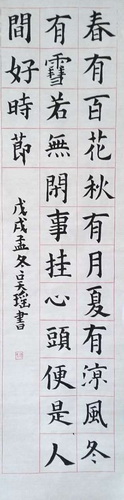 春有百花秋有月夏有涼風冬
有雪若無閑事挂心頭便是人
間好時節
戊戌孟冬吴瑶書